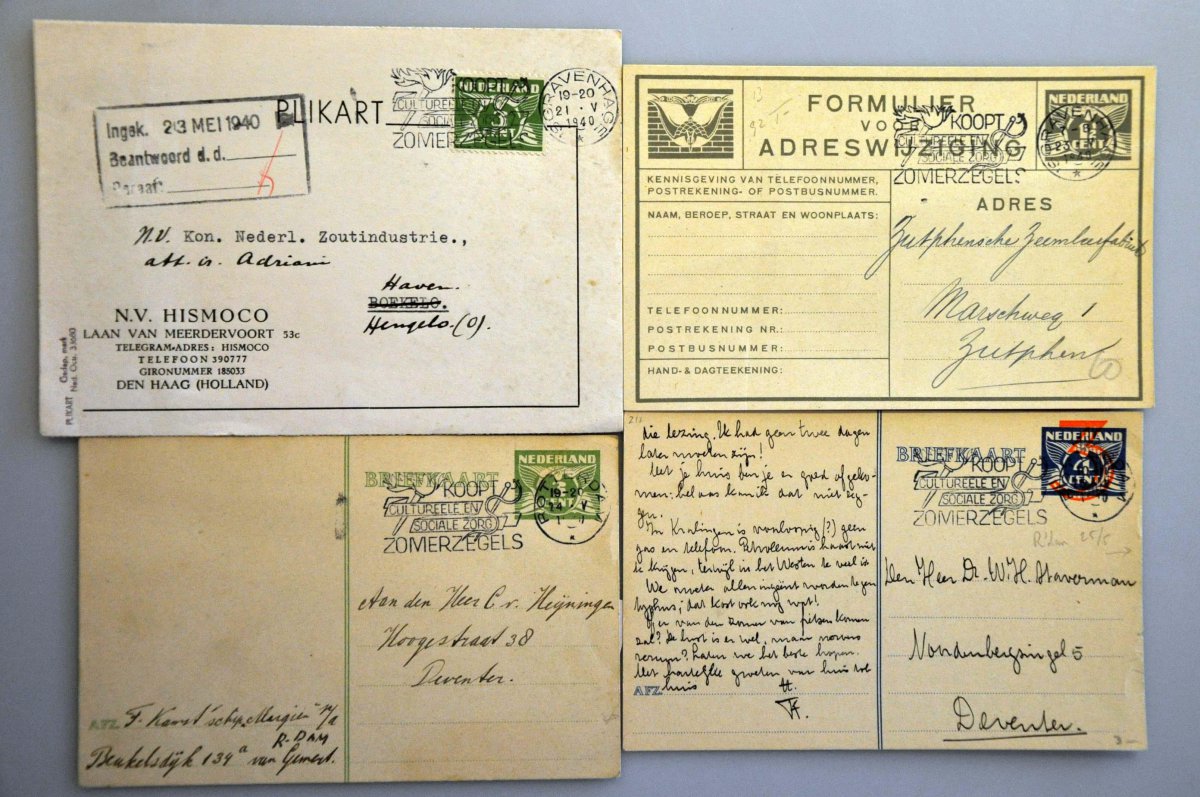 PLIKART
KOOPT
CULTUREELE EN
SOCIALE
ZOMERZEGELS
'S GRAVENHAGE
19-20
21 V
1940
Ingek. 23 MEI 1940
Beantwoord d.d.
Paraaf:
N.V. Kon. Nederl. Zoutindustrie.,
att. ir. Adriani
Haven.
BOEKELO.
Hengelo. (O).
N.V. HISMOCO
LAAN VAN MEERDERVOORT 53c
TELEGRAM-ADRES: HISMOCO
TELEFOON 390777
GIRONUMMER 185033
DEN HAAG (HOLLAND)
PLIKART Gedep. merk
Ned. Octr.
FORMULIER
VOOR
ADRESWIJZIGING
NEDERLAND
KOOPT
CULTUREELE EN
SOCIALE ZORG
ZOMERZEGELS
KENNISGEVING VAN TELEFOONNUMMER,
POSTREKENING- OF POSTBUSNUMMER.
NAAM, BEROEP, STRAAT EN WOONPLAATS:
TELEFOONNUMMER:
POSTREKENING NR.:
POSTBUSNUMMER:
HAND- & DAGTEEKENING:
ADRES
Zutphensche Zeemleerfabriek
Marschweg 1
Zutphen
BRIEFKAART
NEDERLAND
KOOPT
CULTUREELE EN
SOCIALE ZORG
ZOMERZEGELS
19-20
Aan den Heer C v. Heijningen
Hoogestraat 38
Deventer.
AFZ. F. Kanst 'schip "Margien" p/a
R-DAM
Beukelsdijk 139a van Gemert.
die lezing. Ik had geen twee dagen
later moeten zijn!
Met je huis ben je er goed afgeko-
men; helaas kan ik dat niet zeg-
gen.
In Kralingen is voorloopig (?) geen
gas en telefoon. Petroleum is haast niet
te krijgen, terwijl in het Westen te veel is
We moeten allen ingeënt worden tegen
typhus; dat kost ook nog wat!
Of er van den zomer van fietsen komen
zal? De lust is er wel, maar
Laten we het beste hopen.
Met hartelijke groeten van huis tot
AFZ. huis
BRIEFKAART
NEDERLAND
CENT
KOOPT
CULTUREELE EN
SOCIALE ZORG
ZOMERZEGELS
R'dam 25/5
Den Heer Dr. W.H. Staverman
Noordenbergsingel 5
Deventer.